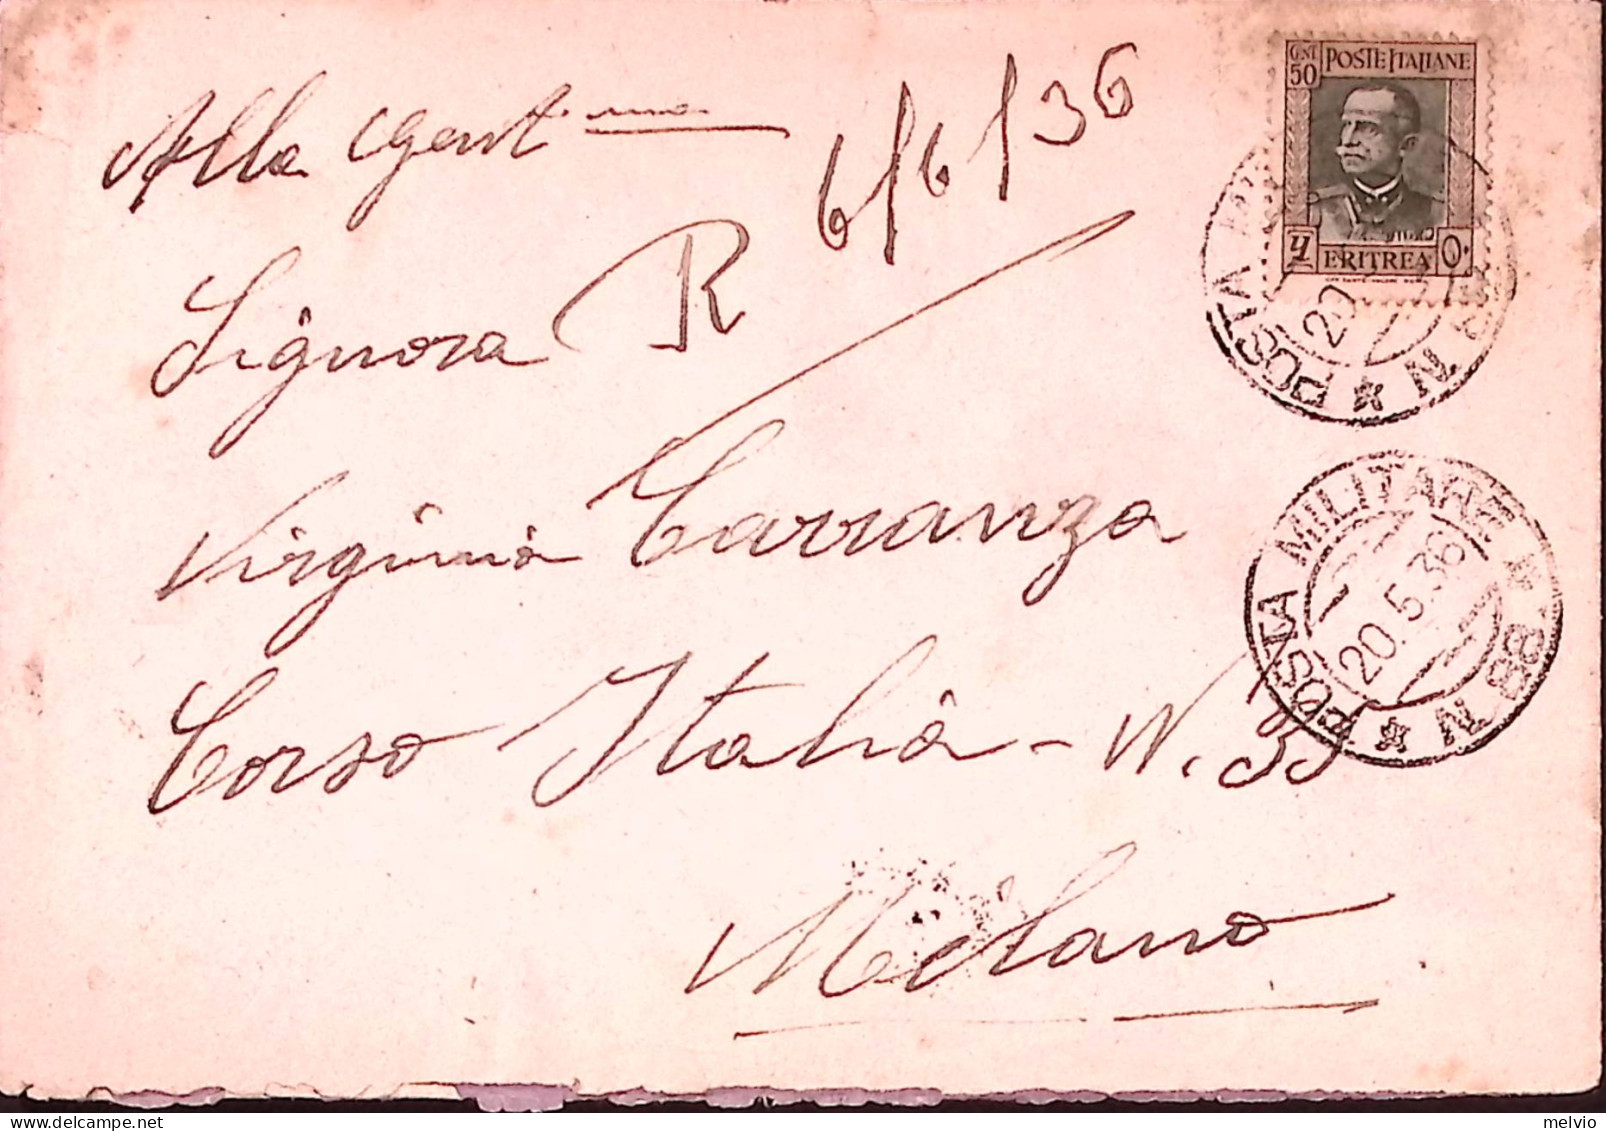 Alla Gent.ma
6/6/36
Signora R
Virginia Carranza
Corso Italia - N. 33
Milano
CENT 50 POSTE ITALIANE
ERITREA
POSTA
20
N
POSTA MILITARE N. 88
20.5.36
melvio